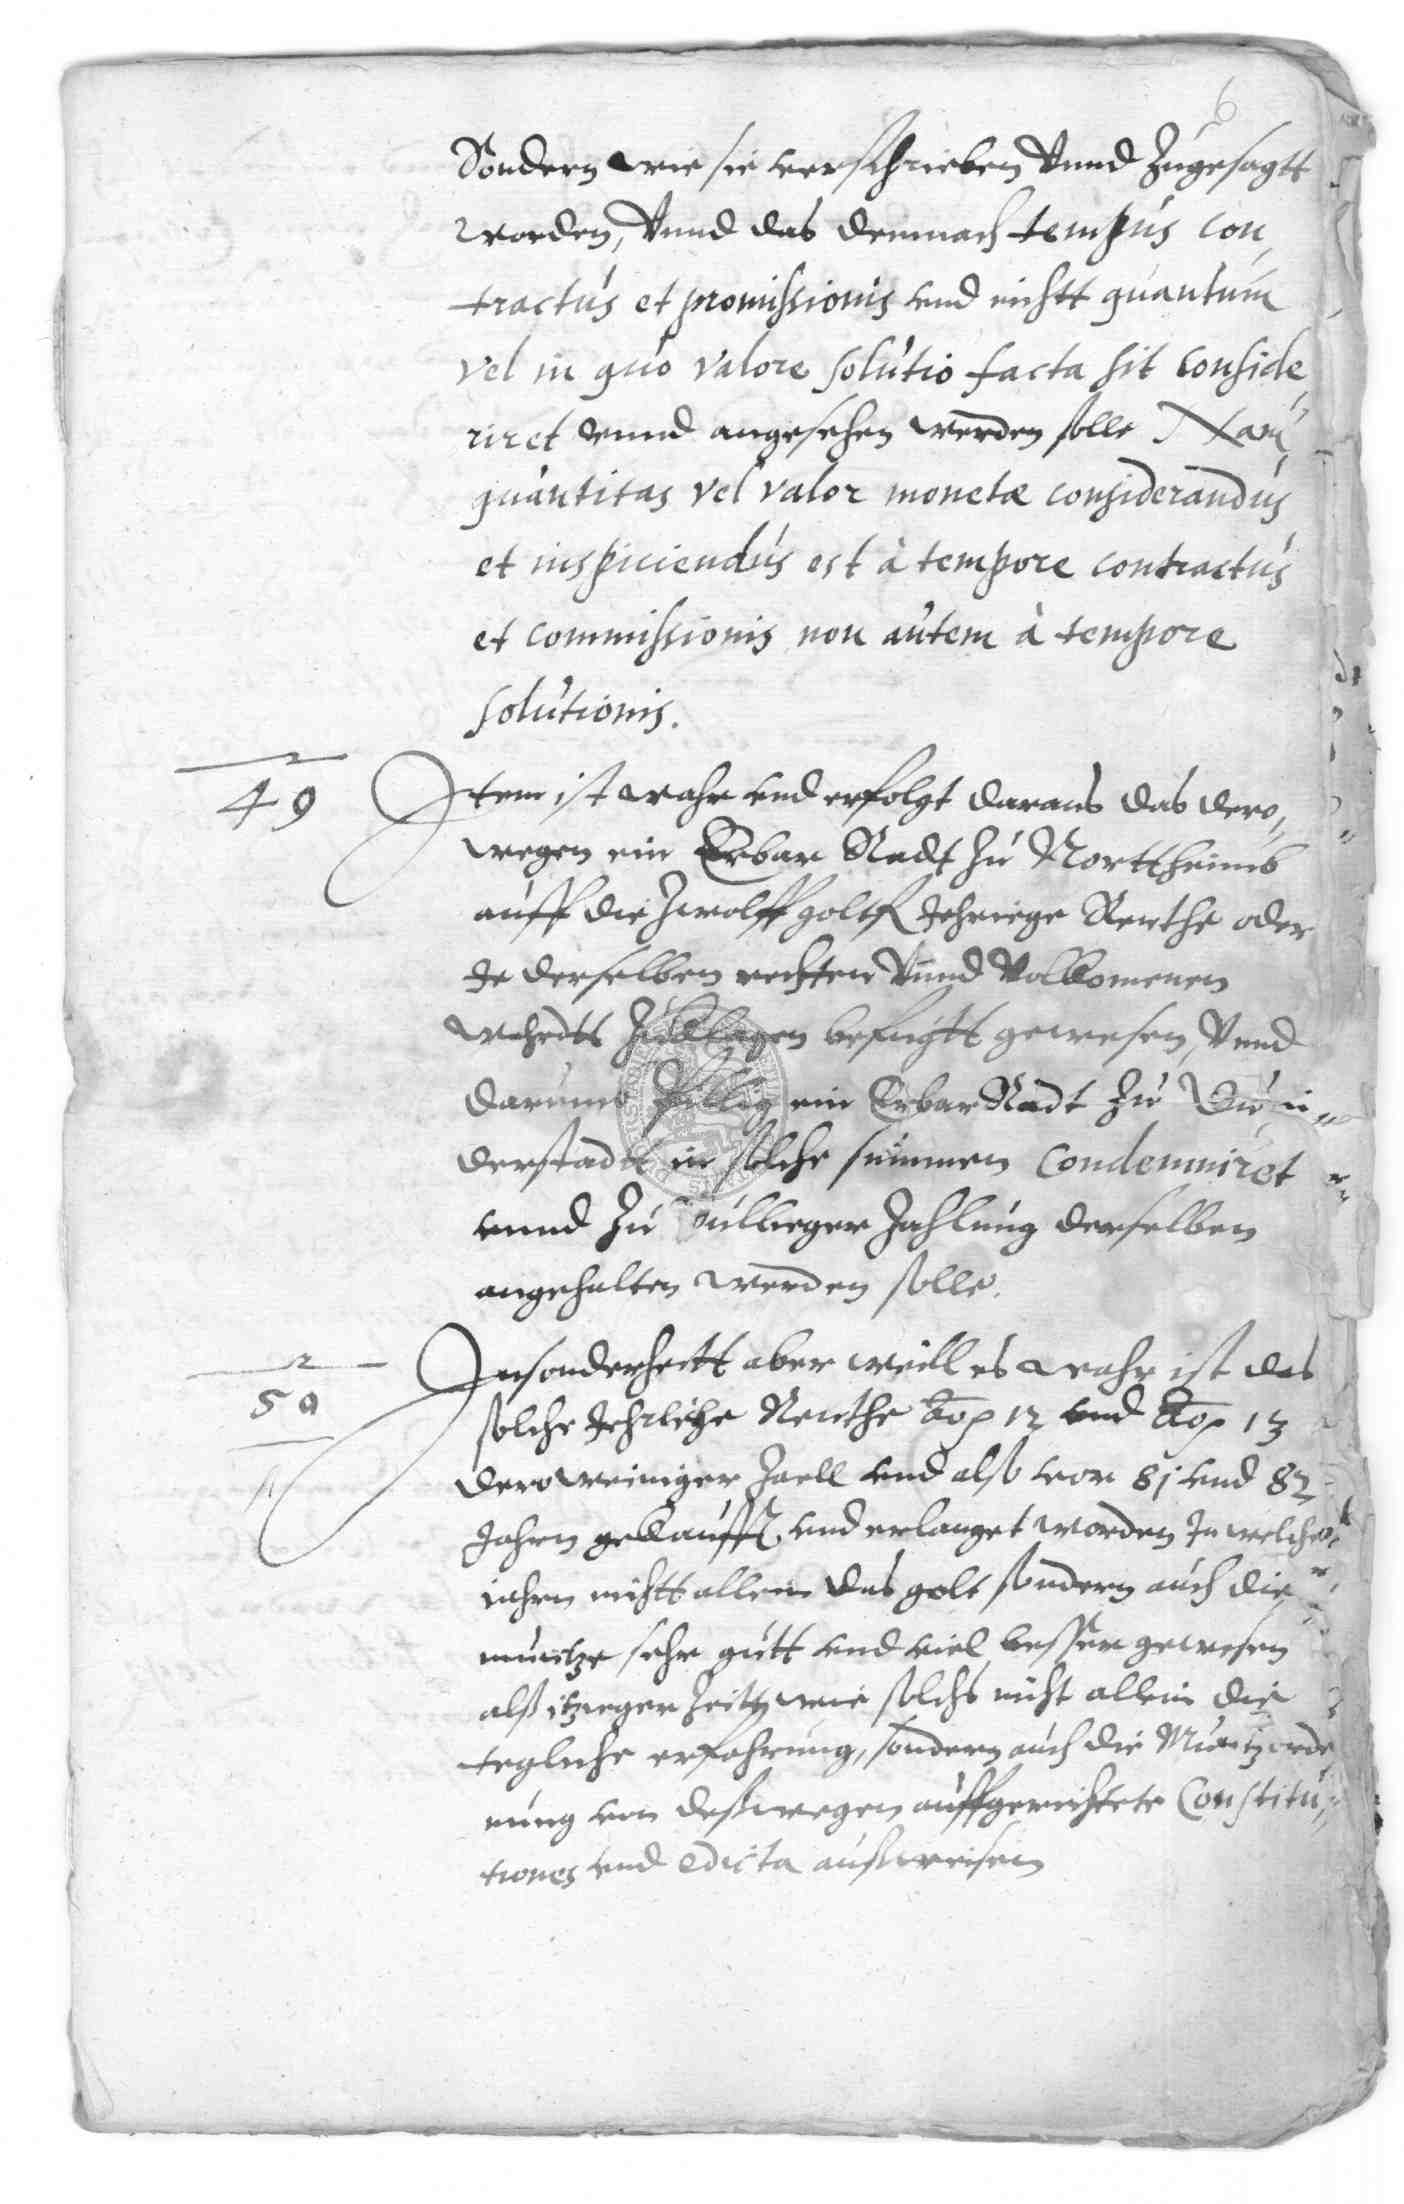 6
Sondern wie sie verschrieben Vnnd Zugesagtt
worden, Vnnd das demnach tempus con,
tractus et promissionis vnd nichtt quantum
vel in quo valore solutio facta sit conside,
riret vnnd angesehen werden solle Nam
quantitas vel valor monetæ considerandus
et inspiciendus est à tempore contractus
et commissionis non autem à tempore
solutionis.
49
Item ist wahr vnd erfolgt daraus das dero,
wegen ein Erbar Radt zu Northeimb
auff die zwolff goltfl Jehriege Renthe oder
Je derselben rechten Vnnd Volkomenen
wehrdts zuklagen befugtt gewesen, Vnnd
darumb pillig ein Erbar Radt zu Du,
derstadtt in solche summen Condemniret
vnnd zu gullieger Zahlung derselben
angehalten werden solle.
50
Insonderheitt aber weill es wahr ist das
solche Jehrliche Renthe Aõ 12 vnd Aõ 13
der weiniger Zaell vnd alß vor 81 vnd 82
Jahren gekaufft vnd erlanget worden In welchen
iahren nichtt allein das golt sondern auch die
muntze sehr gutt vnd viel besser gewesen
alß itzieger Zeitt, wie solchs nicht allein die
tegliche erfahrung, sondern auch die Muntzorde
nung von deßwegen auffgerichtete Constitu,
tiones vnd edicta außweisen